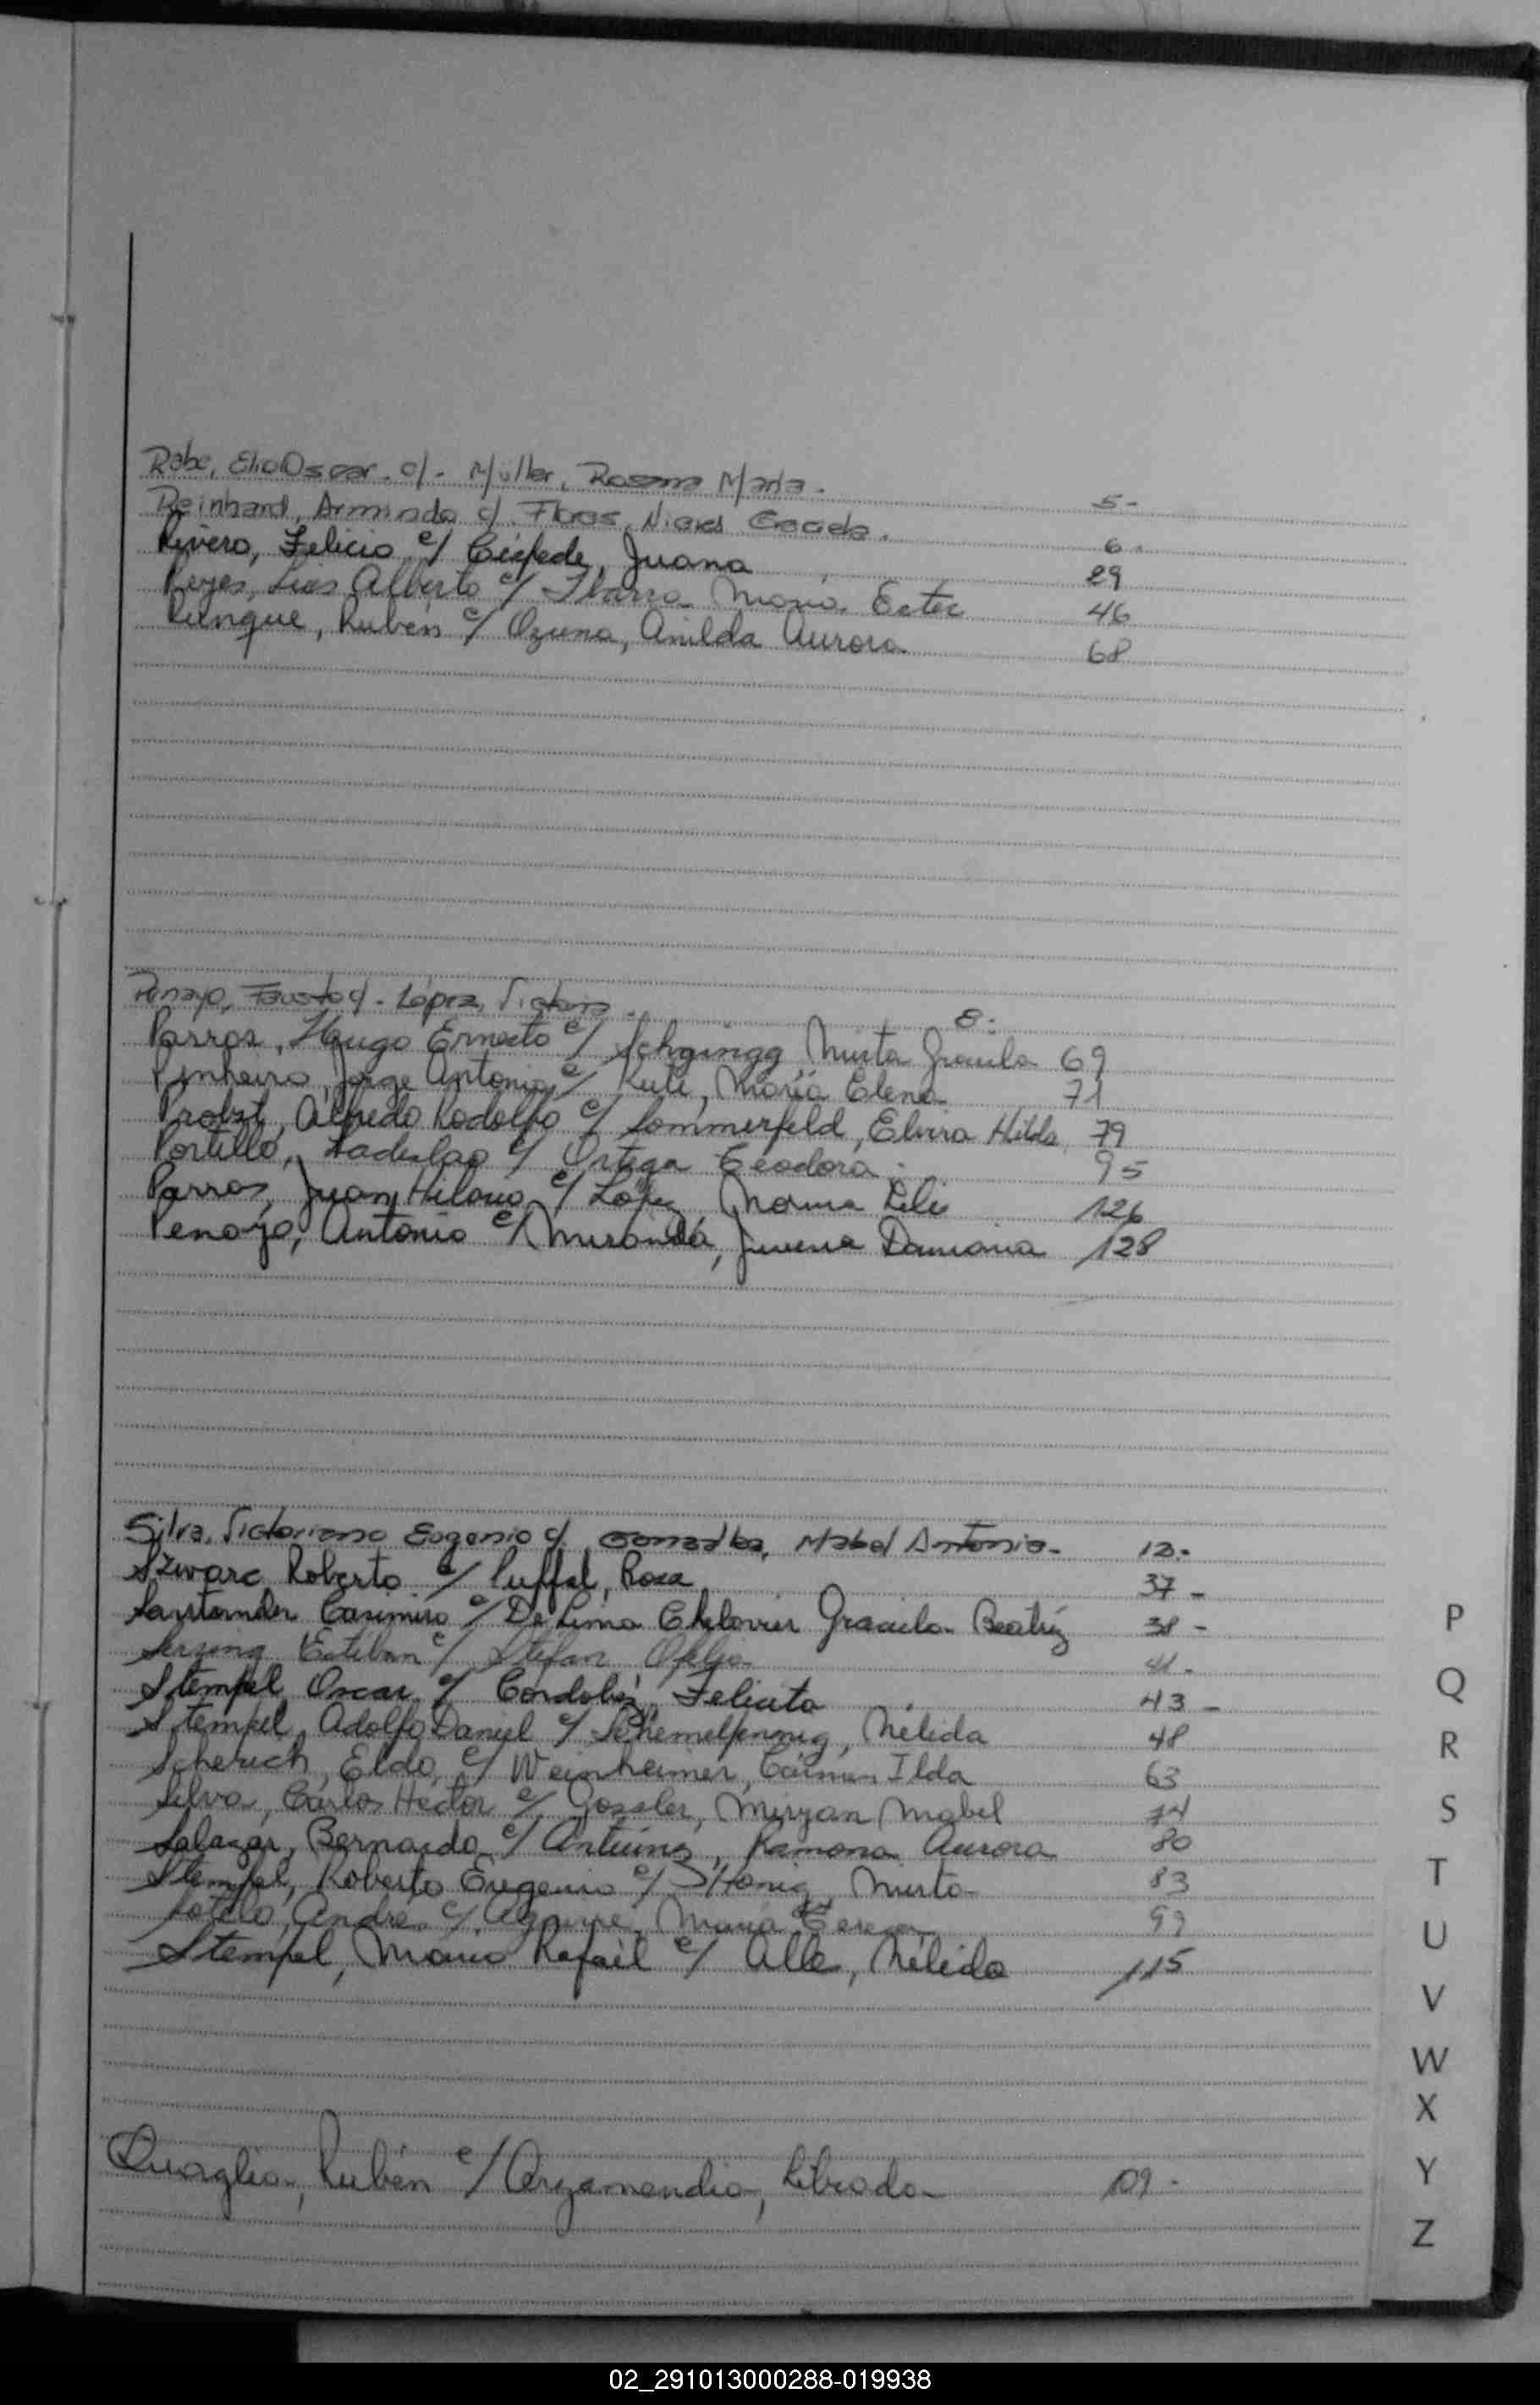 Rabe, Elio Oscar. c/. Müller, Rosana Maria. 5-
Reinhard, Armindo c/. Flores, Nieves Graciela. 6.
Rivero, Felicio c/ Céspede, Juana 29
Reyes, Luis Alberto c/ Ibarra Maria Ester 46
Runque, Rubén c/ Ozuna, Anilda Aurora 68
Penayo, Fausto c/. López, Victoria. 8.
Parros, Hugo Ernesto c/ Mirta Graciela 69
Pinheiro, Jorge Antonio c/ María Elena 71
Probst, Alfredo Rodolfo c/ Sommerfeld, Elvira Hilda 79
Portillo, Ladislao c/ Ortega Teodora. 95
Parros, Juan Hilario c/ López Norma Lili 126
Penayo, Antonio c/ Miranda, Damiana 128
Silva, Victoriano Eugenio c/. González, Mabel Antonia. 12.
Szwarc Roberto c/ Puffal, Rosa 37-
Santander Casimiro c/ De Lima Graciela Beatríz 38-
Serzing Esteban c/ Stefan Ofelia 41.
Stempel Oscar c/ Cordobéz, Felicita 43-
Stempel, Adolfo Daniel c/ Schemelfennig, Nélida 48
Scherich, Eldo, c/ Weinheimer, Carmen Ilda 63
Silva, Carlos Hector c/ Gossler, Miryan Mabel 74
Salazar, Bernardo c/ Antúnez, Ramona Aurora 80
Stempel, Roberto Eugenio c/ Honig, Mirta 83
Sotelo, André c/ Aguirre, María Teresa 99
Stempel, Mario Rafael c/ Alle, Nélida 115
Quaglia, Rubén c/ Arzamendia, Librada 109.
P
Q
R
S
T
U
V
W
X
Y
Z
02_291013000288-019938